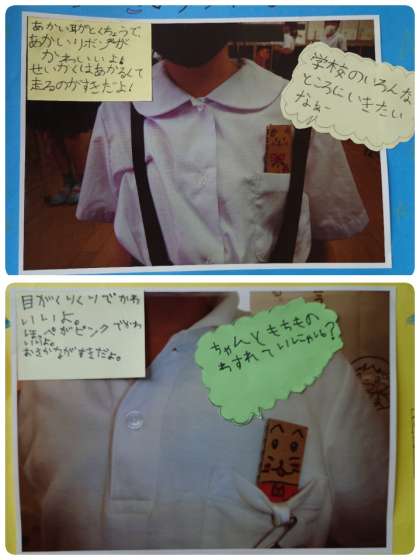 あかい耳がとくちょうで、
あかいリボンが
かわいいよ!
せいかくはあかるくて
走るのがすきだよ!
学校のいろんな
ところにいきたい
なぁー
目がくりくりでかわ
いいよ。
ほっぺがピンクでかわ
いいよ。
おさかながすきだよ。
ちゃんともちもの
わすれていにゃい?